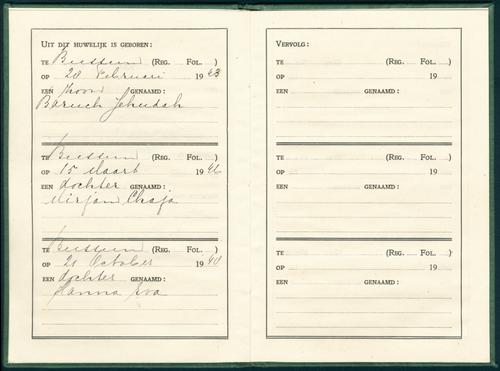 UIT DIT HUWELIJK IS GEBOREN:
TE Bussum (REG. FOL. )
OP 28 Februari 19 43
EEN Zoon GENAAMD:
Baruch Jehudah
TE Bussum (REG. FOL. )
OP 15 Maart 19
EEN dochter GENAAMD:
Mirjam Chaja
TE Bussum (REG. FOL. )
OP 21 October 19
EEN dochter GENAAMD:
Hanna Eva
VERVOLG:
TE (REG. FOL. )
OP 19
EEN GENAAMD:
TE (REG. FOL. )
OP 19
EEN GENAAMD:
TE (REG. FOL. )
OP 19
EEN GENAAMD: